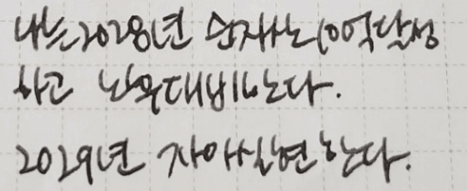 나는 2028년 순자산 100억 달성
하고 노후대비한다.
2029년 자아실현한다.